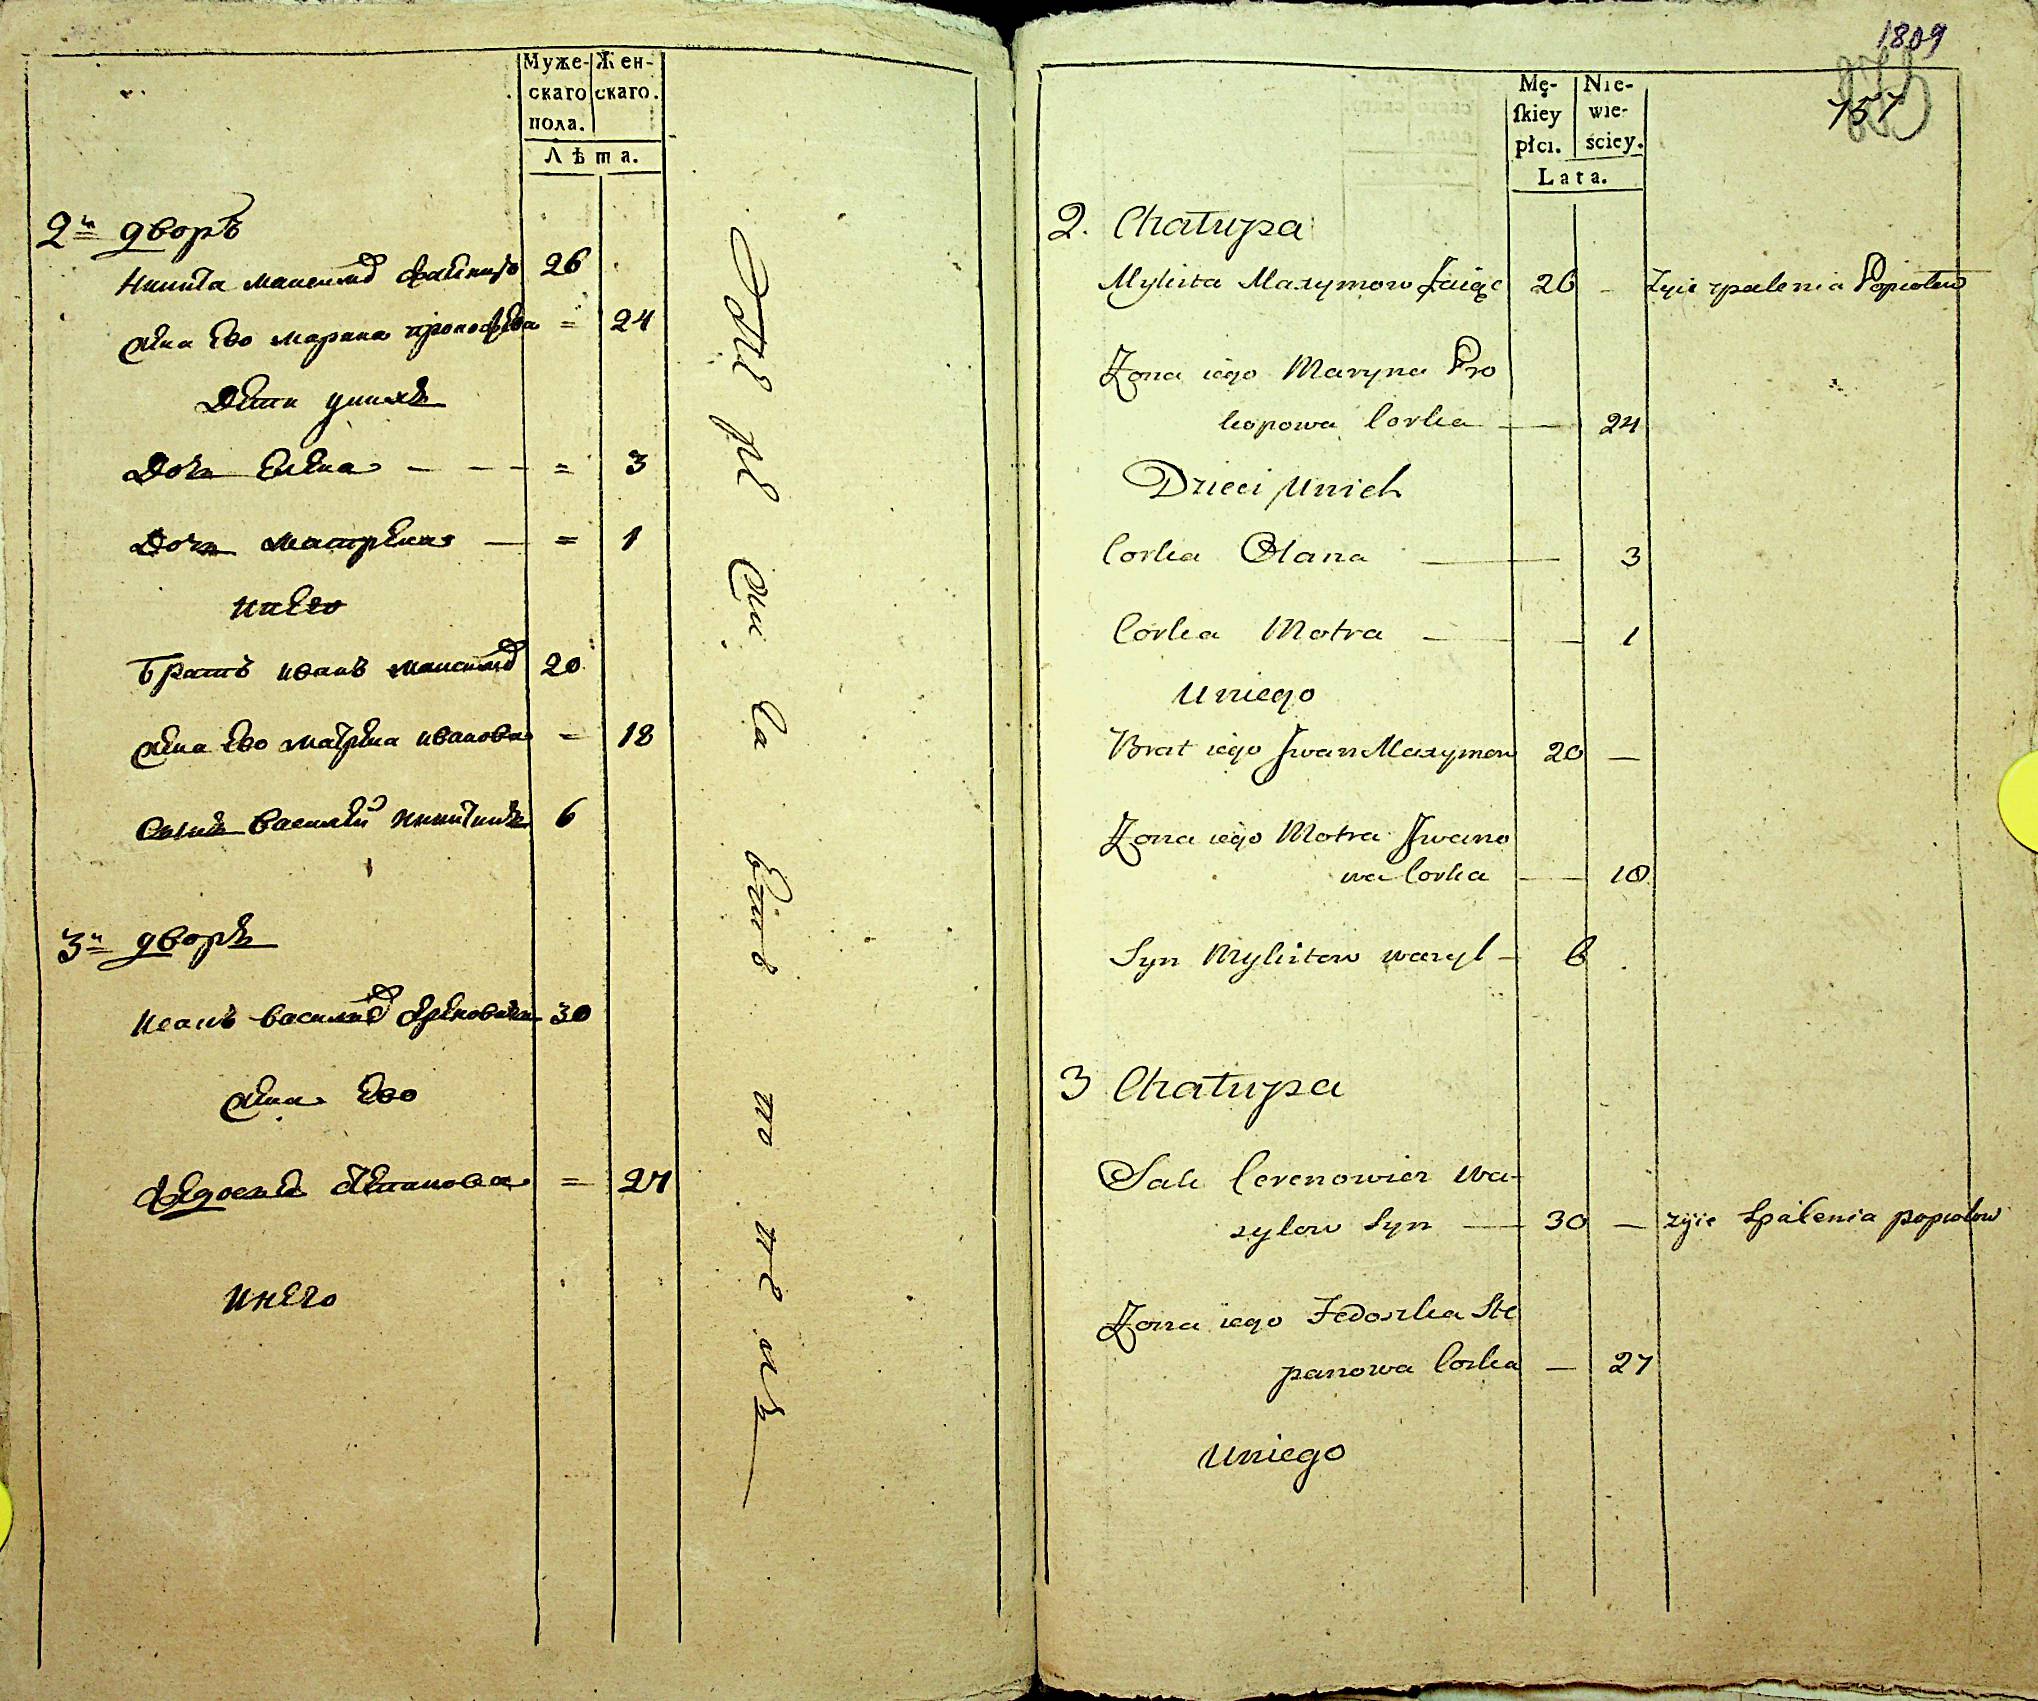 Муже- Жен-
скаго скаго.
пола.
Лѣта.
2й дворъ
Никита максимов 26
жена ево марина прокофева = 24
дети у них
Дочь Елена — — — = 3
Дочь матрена — = 1
у нево
братъ иванъ максимов 20
жена ево матрена иванова = 18
Сынъ василей никитинъ 6
3й дворъ
иванъ василиев 30
жена ево
федосья степанова = 27
у него
1809
157
Mę- Nie-
skiey wie-
płci. ściey.
Lata.
2. Chałupa
Mykita Maxymow Zaięc 26 — żyie z palenia Popiołów
Zona iego Maryna Pro
kopowa Corka — — 24
Dzieci Unich
Corka Olana — — 3
Corka Motra — — 1
Uniego
Brat iego Jwan Maxymow 20 —
Zona iego Motra Jwano
wa Corka — — 18
Syn Mykitow wasyl — 6
3 Chałupa
Wa-
sylow Syn — 30 — żyie spalenia popiołow
Zona iego Fedoska Ste
panowa Corka — — 27
Uniego